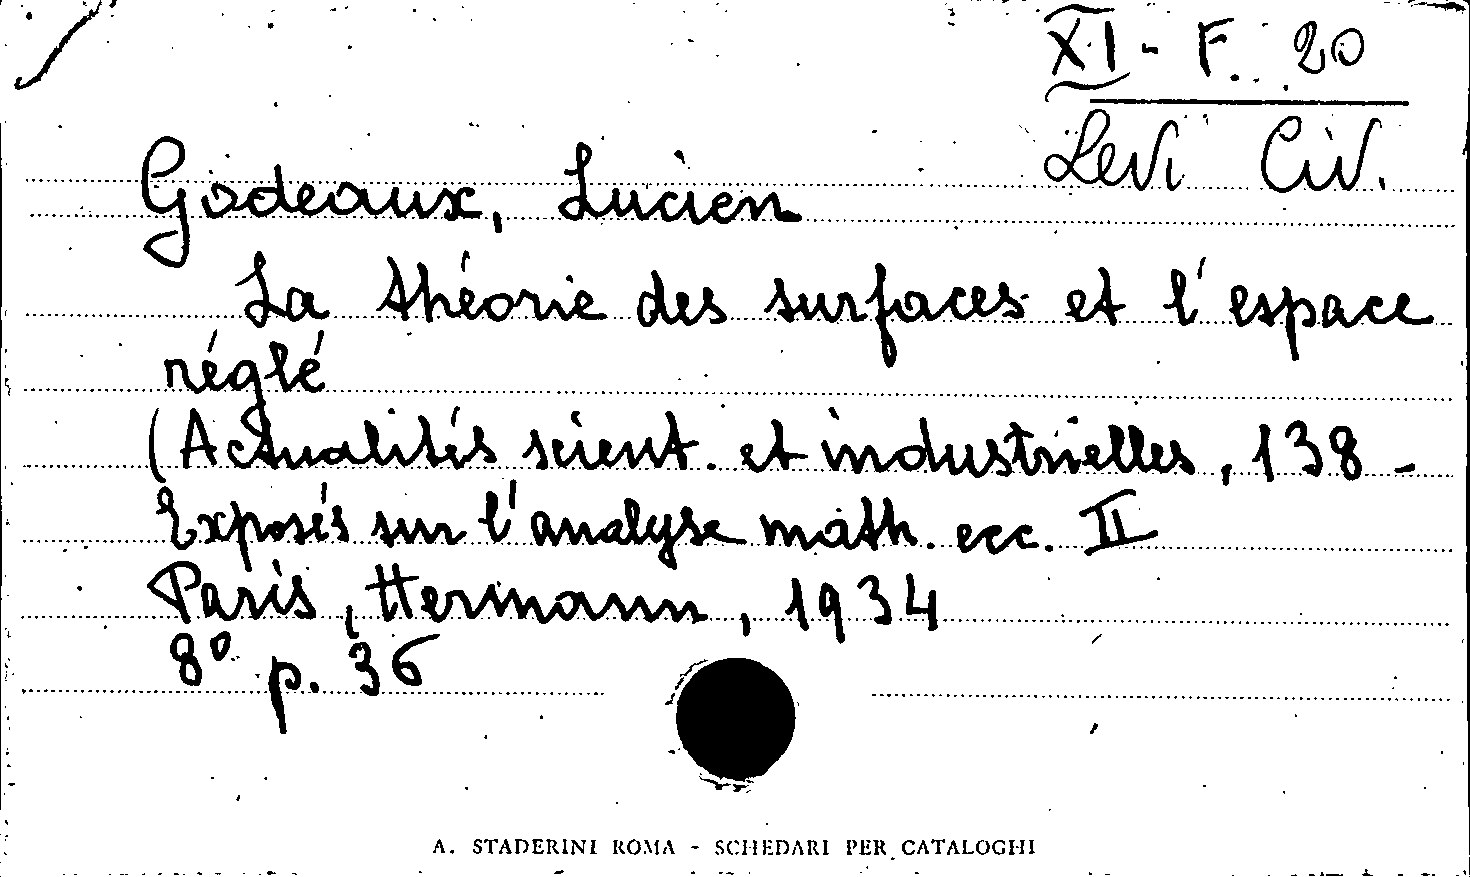 XI - F. 20
Levi Civ.
Godeaux, Lucien
La théorie des surfaces et l'espace
réglé
(Actualités scient. et industrielles, 138 -
Exposés sur l'analyse math. ecc. II
Paris, Hermann, 1934
8° p. 36
A. STADERINI ROMA - SCHEDARI PER CATALOGHI